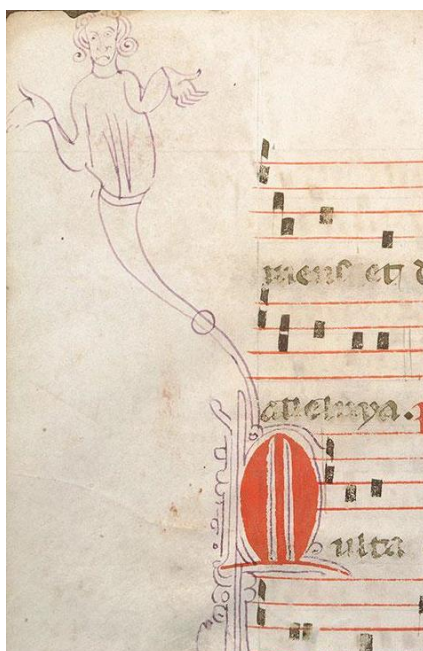 mens et
alleluya.
Multa